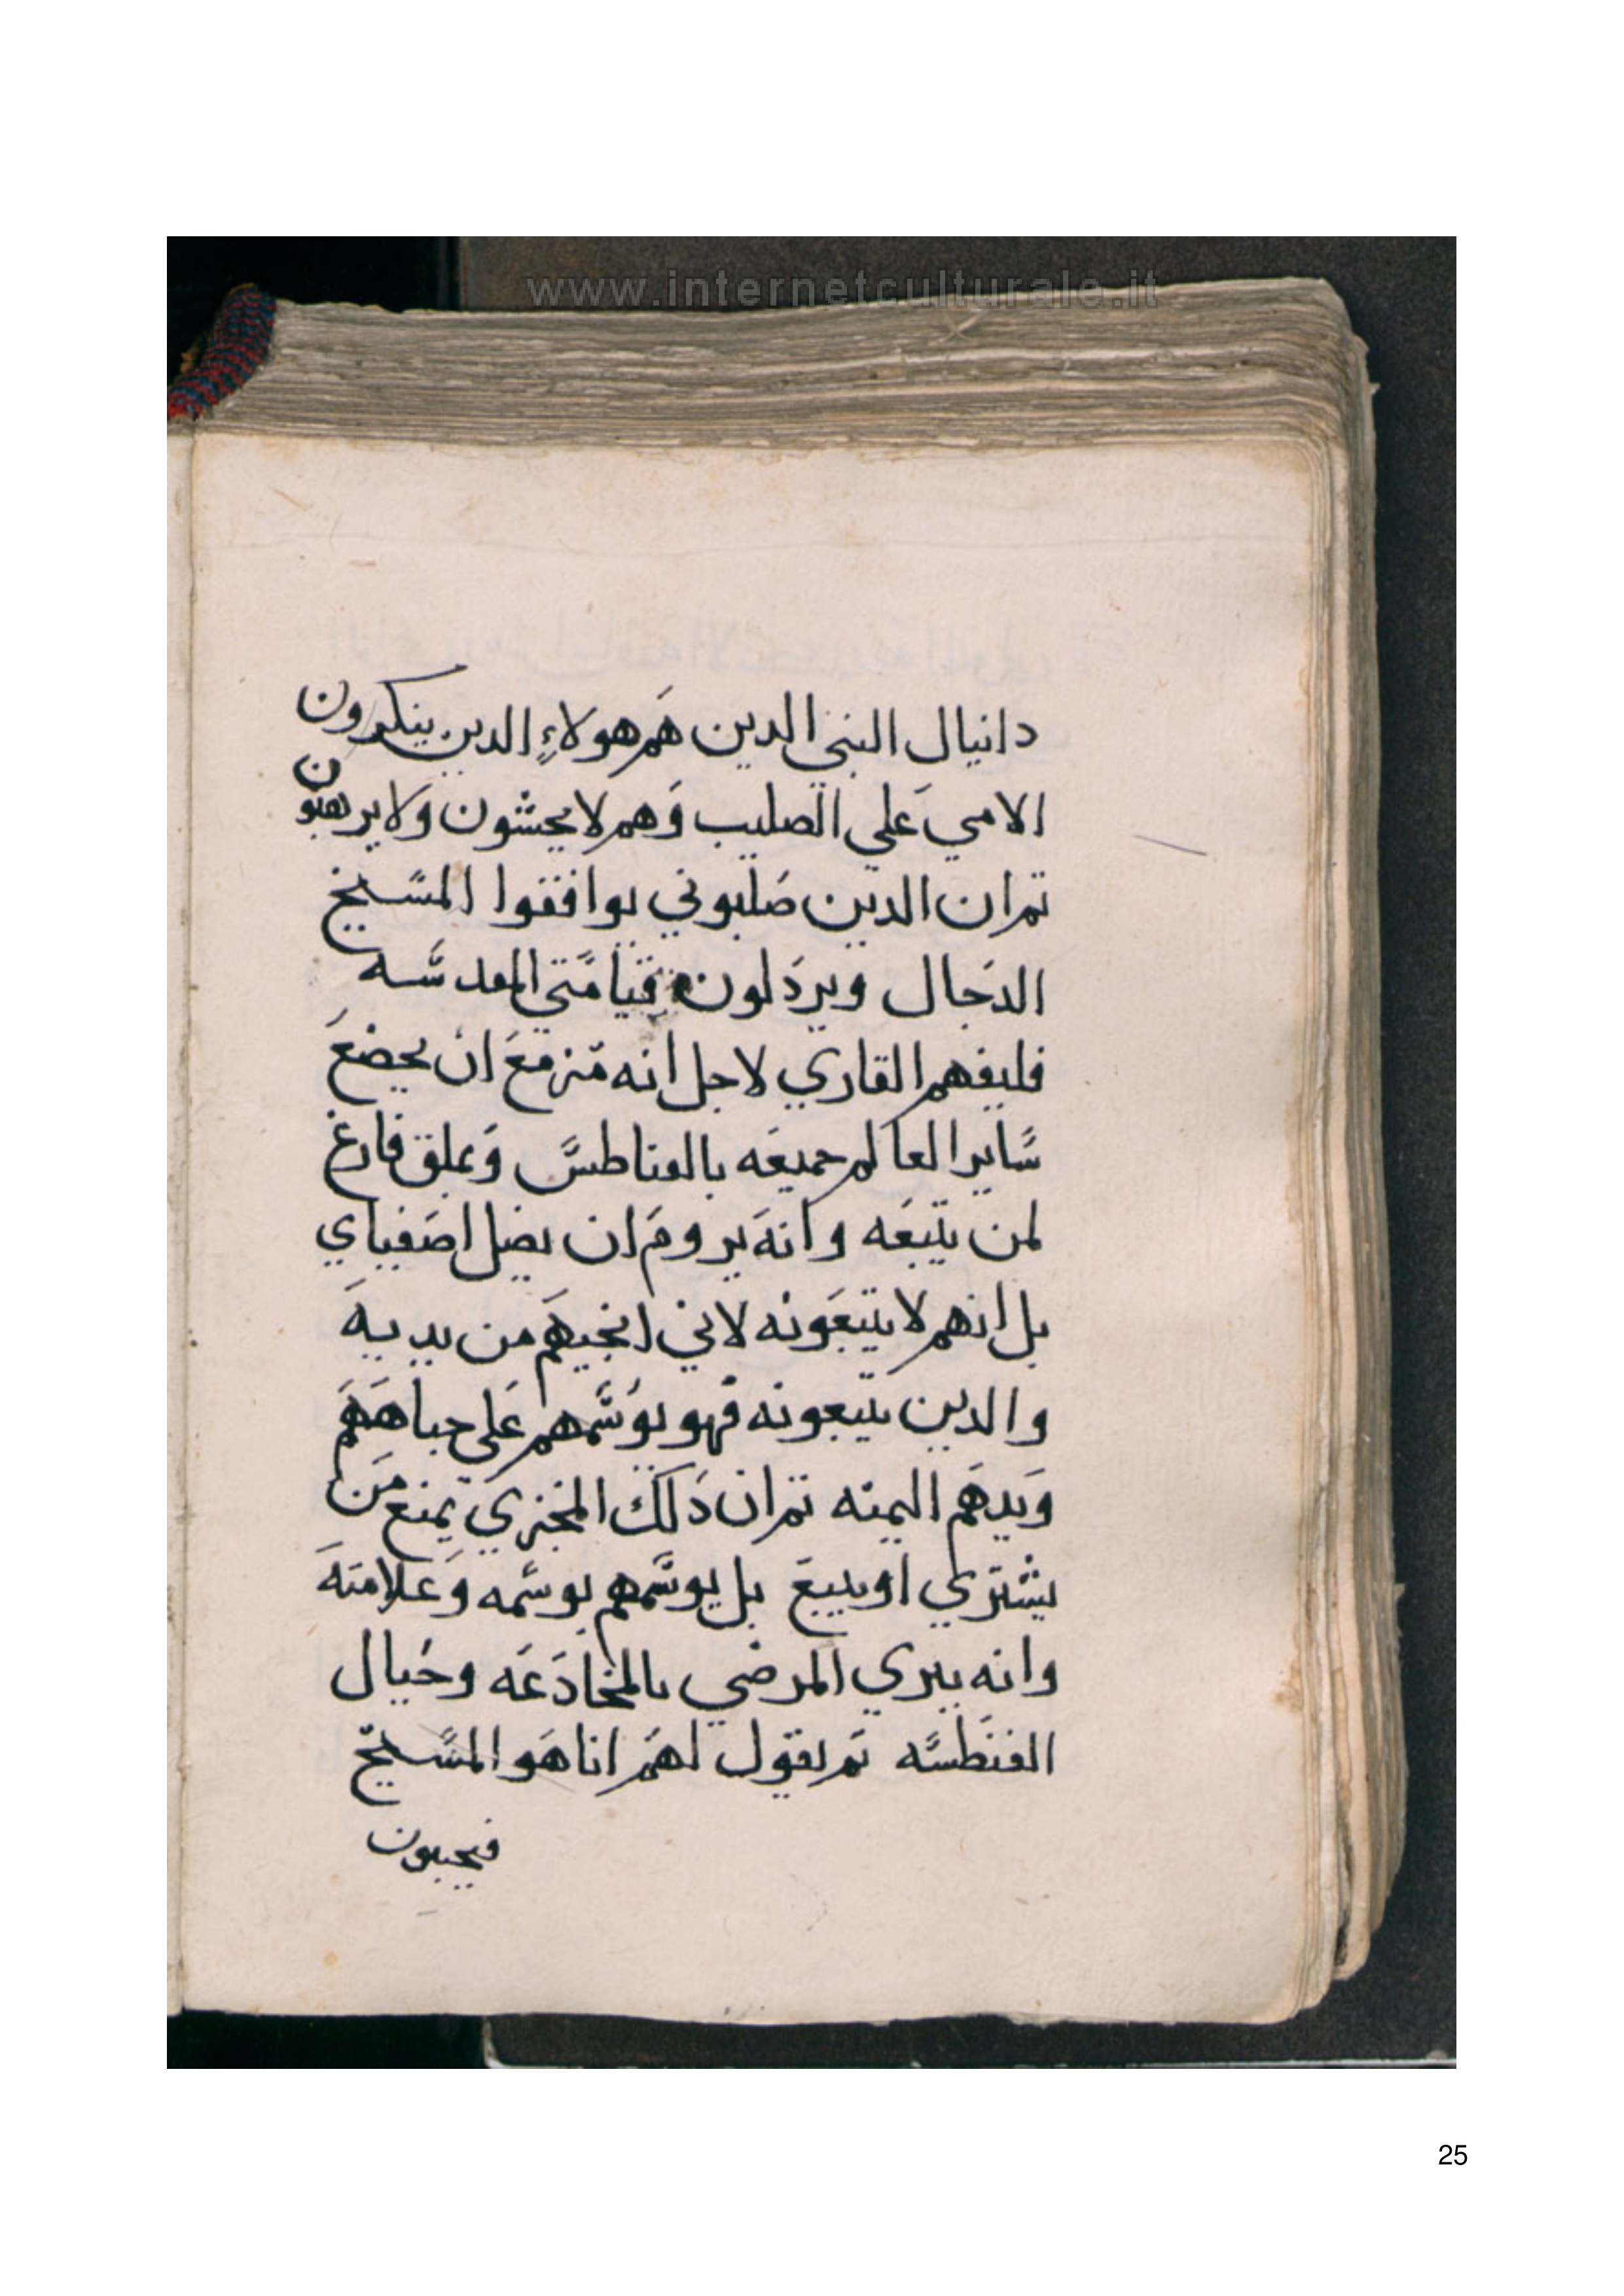 www.internetculturale.it
دانيال النبي الدين هم هولاءِ الدين ينكرون
الامي علي الصليب وهم لا يخشون ولا يرهبون
تم ان الدين صلبوني يوافقوا المسيح
الدجال ويردلون قيامتي المقدسه
فليفهم القاري لاجل انه مزمع ان يخضع
ساير العالم جميعه بالفناطس وعلق فارغ
لمن يتبعه وانه يروم ان يضل اصفياي
بل انهم لا يتبعونه لاني انجيهم من يديه
والدين يتبعونه فهو يوسمهم علي جباههم
ويدهم اليمنه تم ان دلك المخزي يمنع من
يشتري او يبيع بل يوسمهم بوسمه وعلامته
وانه يبري المرضي بالمخادعه وخيال
الفنطسه تم يقول لهم انا هو المسيح
فيجيبون
25